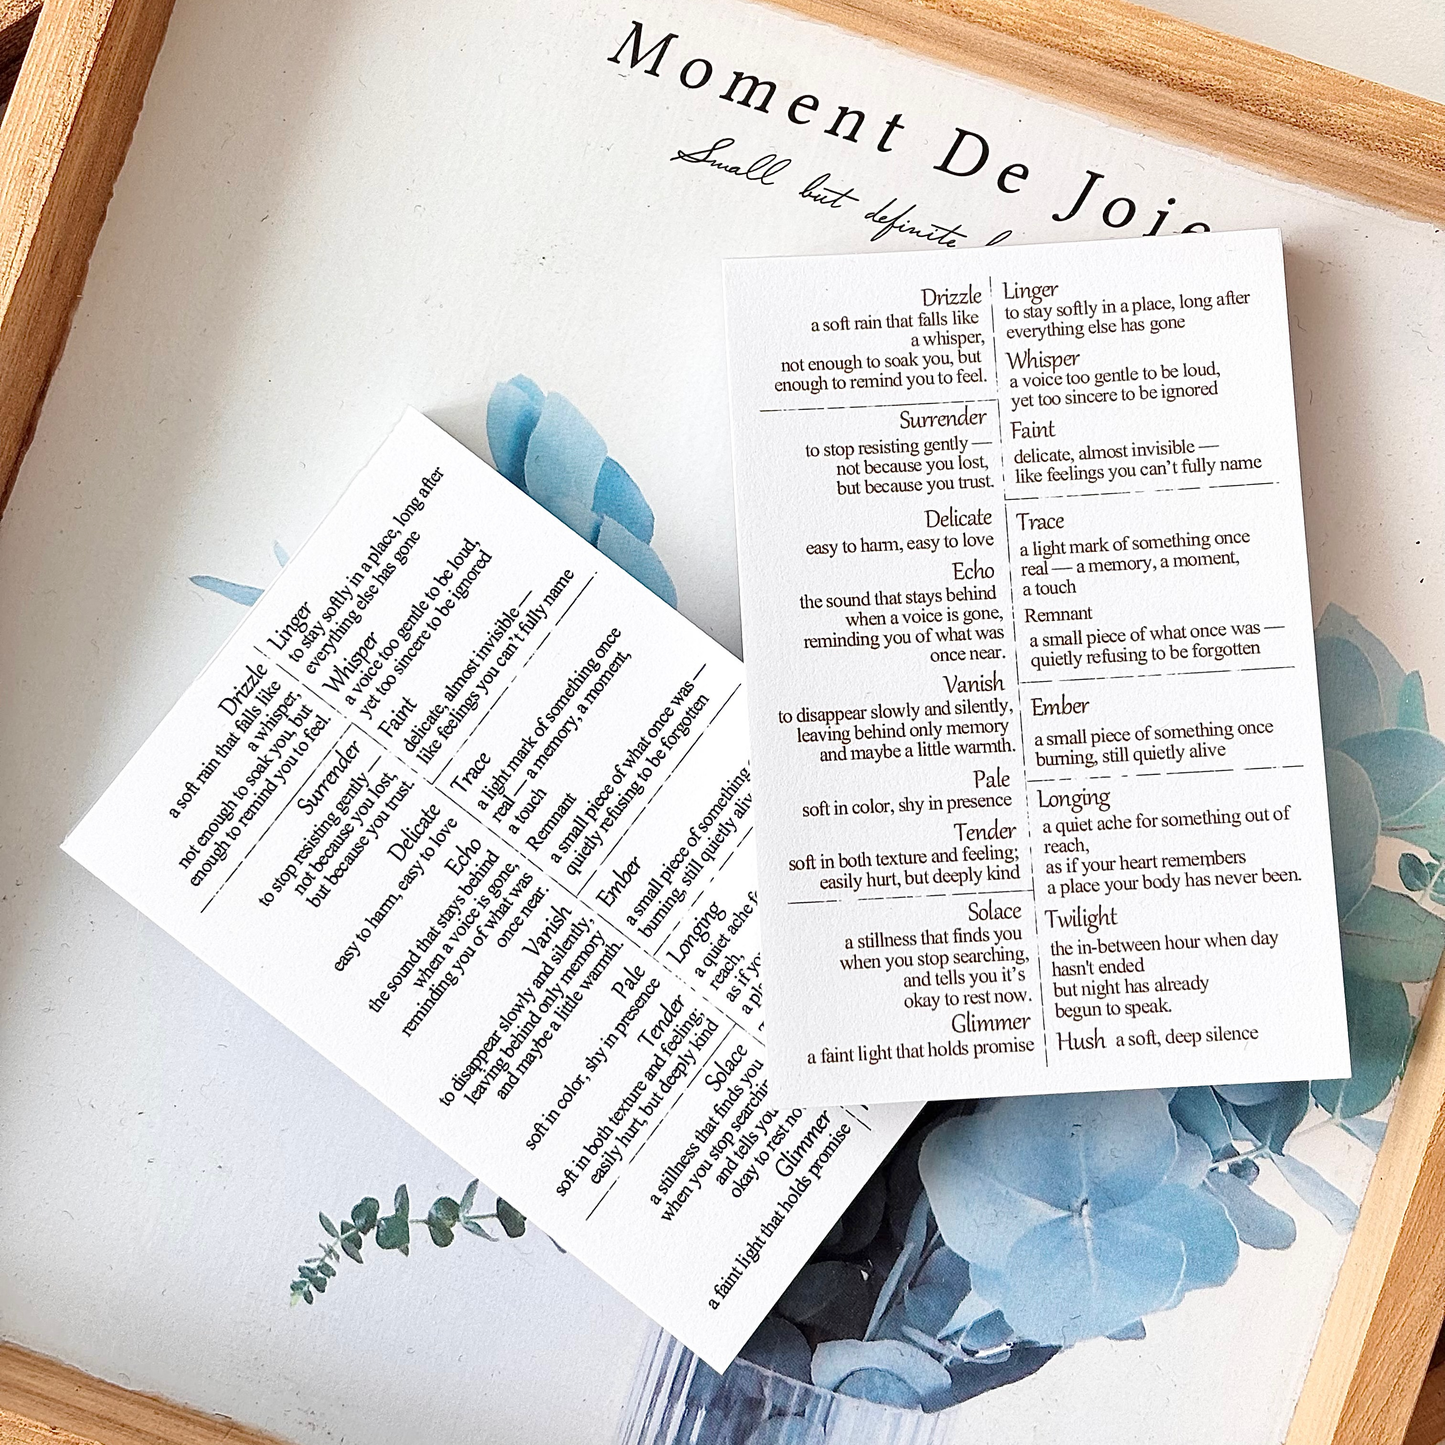 Moment De Joie
Small but definite
Drizzle
a soft rain that falls like
a whisper,
not enough to soak you, but
enough to remind you to feel.
Surrender
to stop resisting gently —
not because you lost,
but because you trust.
Delicate
easy to harm, easy to love
Echo
the sound that stays behind
when a voice is gone,
reminding you of what was
once near.
Vanish
to disappear slowly and silently,
leaving behind only memory
and maybe a little warmth.
Pale
soft in color, shy in presence
Tender
soft in both texture and feeling;
easily hurt, but deeply kind
Solace
a stillness that finds you
when you stop searching,
and tells you it's
okay to rest now.
Glimmer
a faint light that holds promise
Linger
to stay softly in a place, long after
everything else has gone
Whisper
a voice too gentle to be loud,
yet too sincere to be ignored
Faint
delicate, almost invisible —
like feelings you can't fully name
Trace
a light mark of something once
real — a memory, a moment,
a touch
Remnant
a small piece of what once was —
quietly refusing to be forgotten
Ember
a small piece of something once
burning, still quietly alive
Longing
a quiet ache for something out of
reach,
as if your heart remembers
a place your body has never been.
Twilight
the in-between hour when day
hasn't ended
but night has already
begun to speak.
Hush a soft, deep silence
Drizzle
a soft rain that falls like
a whisper,
not enough to soak you, but
enough to remind you to feel.
Surrender
to stop resisting gently —
not because you lost,
but because you trust.
Delicate
easy to harm, easy to love
Echo
the sound that stays behind
when a voice is gone,
reminding you of what was
once near.
Vanish
to disappear slowly and silently,
leaving behind only memory
and maybe a little warmth.
Pale
soft in color, shy in presence
Tender
soft in both texture and feeling;
easily hurt, but deeply kind
Solace
a stillness that finds you
when you stop searching
and tells you
okay to rest no
Glimmer
a faint light that holds promise
Linger
to stay softly in a place, long after
everything else has gone
Whisper
a voice too gentle to be loud,
yet too sincere to be ignored
Faint
delicate, almost invisible —
like feelings you can't fully name
Trace
a light mark of something once
real — a memory, a moment,
a touch
Remnant
a small piece of what once was —
quietly refusing to be forgotten
Ember
a small piece of something
burning, still quietly aliv
Longing
a quiet ache f
reach,
as if yo
a pl